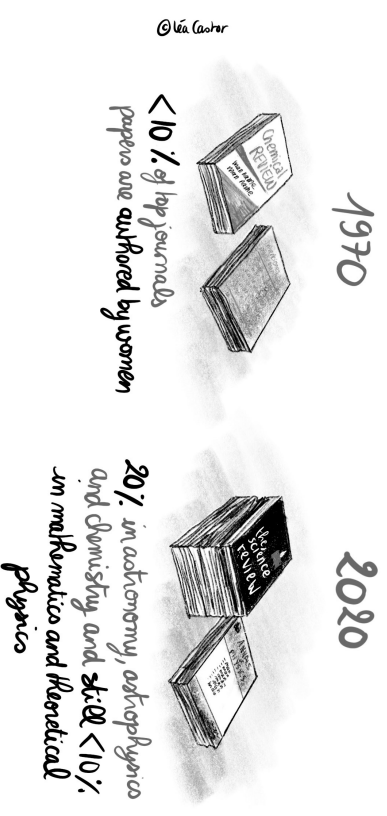 1970
Chemical
REVIEW
<10% of top journals
papers are authored by women
2020
the
science
review
20% in astronomy, astrophysics
and chemistry and still <10%
in mathematics and theoretical
physics
© Léa Castor